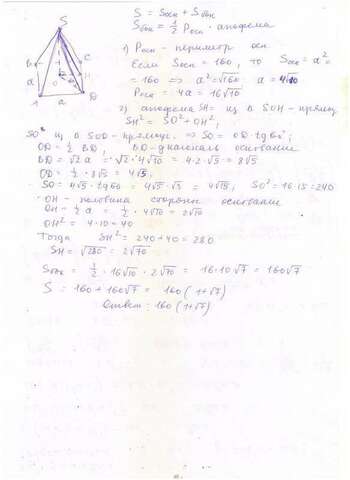 S
B
C
H
O
a
A
a
D
S = Sосн + Sбок
Sбок = 1/2 Pосн · апофема
1) Pосн - периметр осн
Если Sосн = 160, то Sосн = a² =
= 160 => a² = √160 a = 4√10
Pосн = 4a = 16√10
2) апофема SH = из △ SOH - прямоуг
SH² = SO² + OH²;
SO² из △ SOD - прямоуг. => SO = OD · tg 60°;
OD = 1/2 BD, BD - диагональ основания
BD = √2 a = √2 · 4√10 = 4·2·√5 = 8√5
OD = 1/2 · 8√5 = 4√5;
SO = 4√5 · tg 60 = 4√5 · √3 = 4√15; SO² = 16·15 = 240
OH - половина стороны основания
OH = 1/2 a = 1/2 · 4√10 = 2√10
OH² = 4·10 = 40
Тогда SH² = 240 + 40 = 280
SH = √280 = 2√70
Sбок = 1/2 · 16√10 · 2√70 = 16·10√7 = 160√7
S = 160 + 160√7 = 160(1+√7)
Ответ: 160(1+√7)